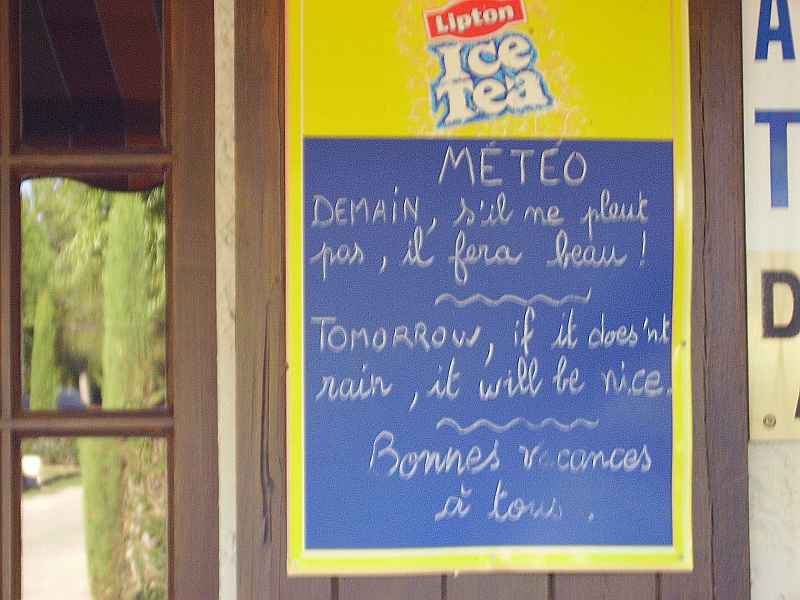 Lipton
Ice
Tea
MÉTÉO
DEMAIN, s'il ne pleut
pas, il fera beau !
TOMORROW, if it does'nt
rain, it will be nice.
Bonnes vacances
à tous.
A
T
D